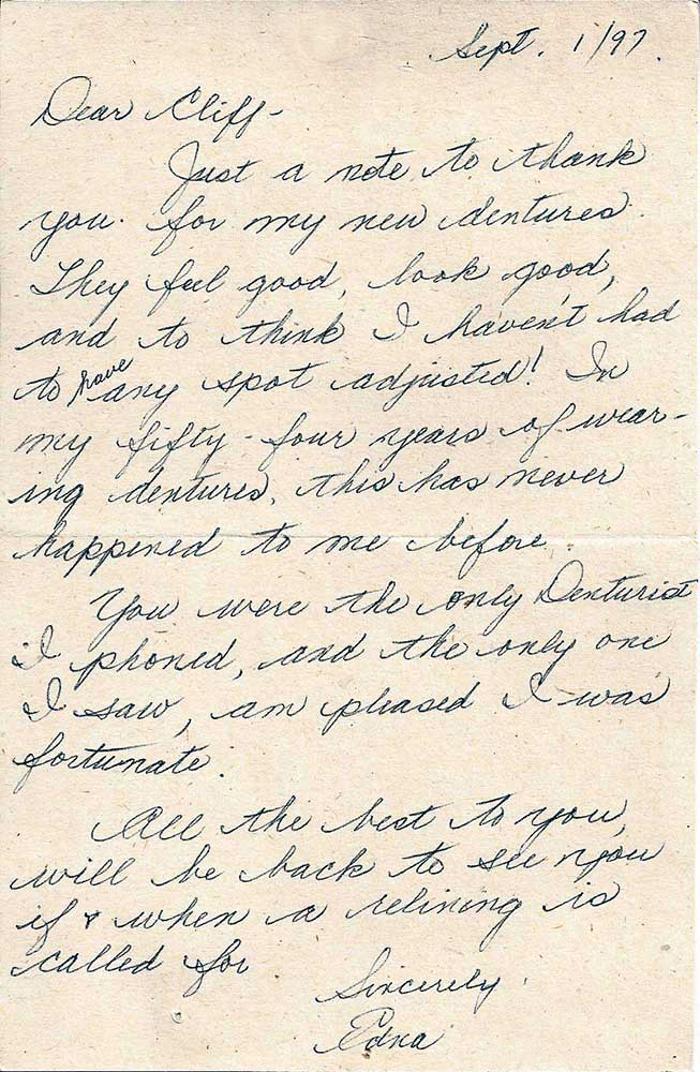 Sept. 1/97.
Dear Cliff-
Just a note to thank
you for my new dentures.
They feel good, look good,
and to think I haven't had
to have any spot adjusted! In
my fifty-four years of wear-
ing dentures, this has never
happened to me before.
You were the only Denturist
I phoned, and the only one
I saw, am pleased I was
fortunate.
All the best to you,
will be back to see you
if & when a relining is
called for
Sincerely,
Edna